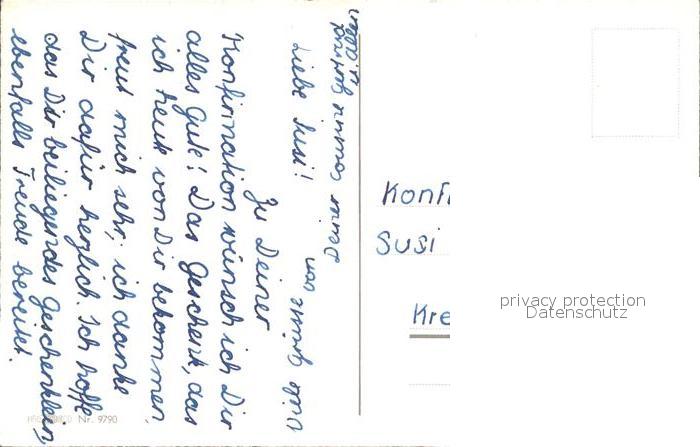 Liebe Susi!
Zu Deiner
Konfirmation wünsch ich Dir
alles Gute! Das Geschenk, das
ich heute von Dir bekommen,
freut mich sehr; ich danke
Dir dafür herzlich. Ich hoffe
das Dir beiliegendes Geschenklein
ebenfalls Freude bereitet.
und grüsst von
Konfi
SUSI
Kre
privacy protection
Datenschutz
Nr. 9790